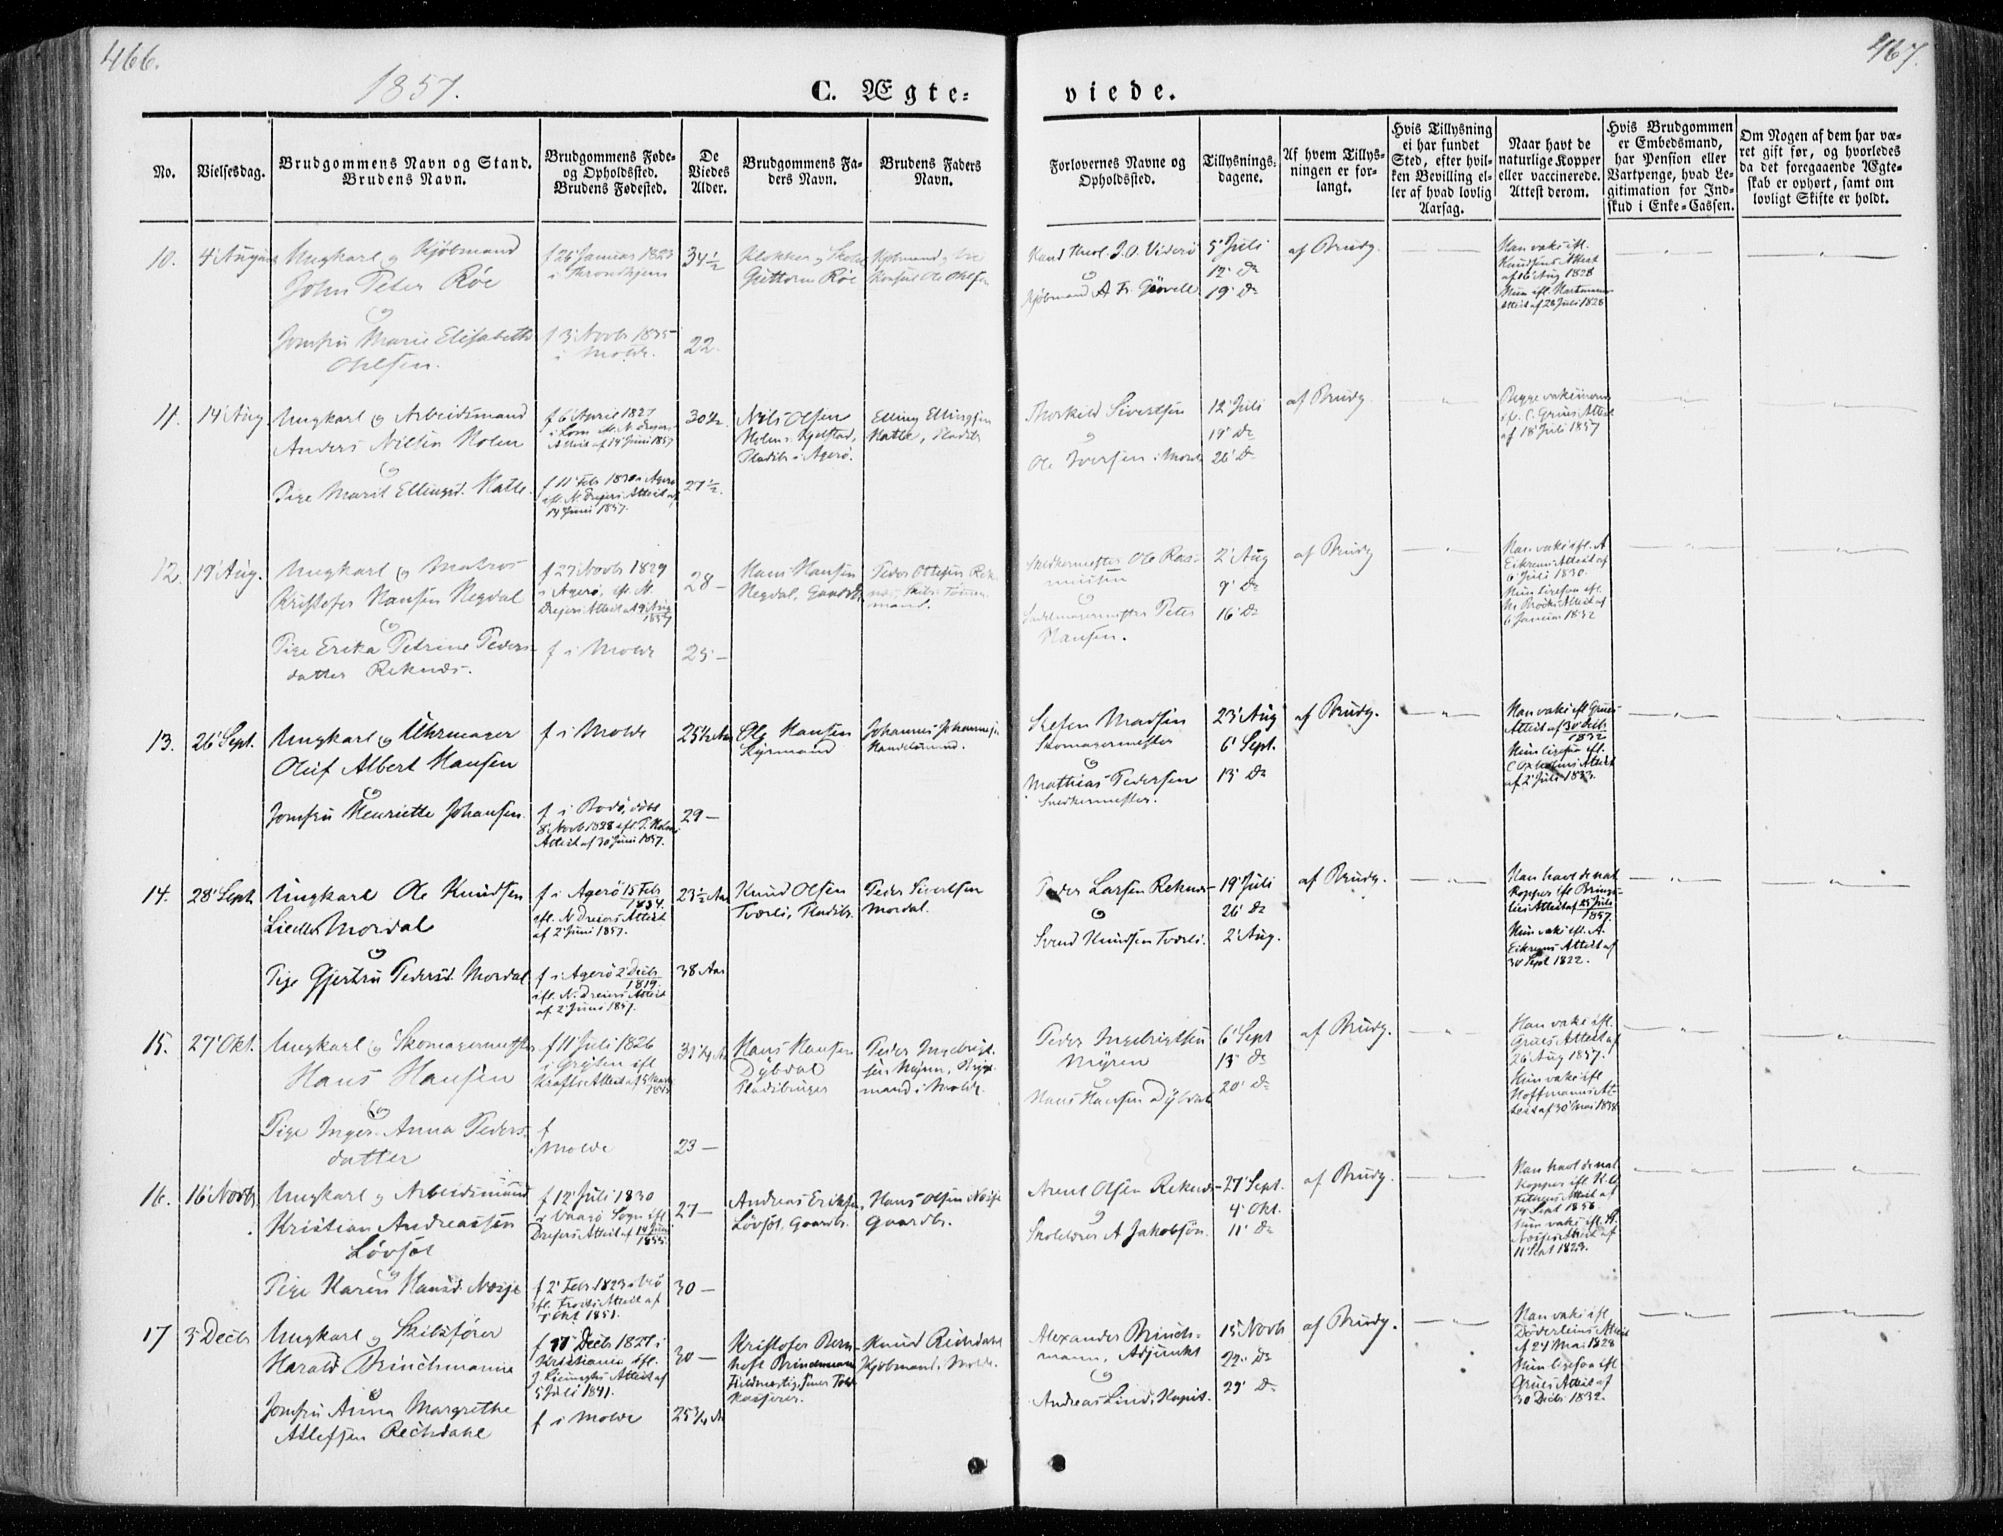 466.
467.
1857.
C. Ægte=
viede.
No.
Vielsesdag.
Brudgommens Navn og Stand.
Brudens Navn.
Brudgommens Føde-
og Opholdssted.
Brudens Fødested.
De
Viedes
Alder.
Brudgommens Fa-
ders Navn.
Brudens Faders
Navn.
Forlovernes Navne og
Opholdssted.
Tillysnings-
dagene.
Af hvem Tillys-
ningen er for-
langt.
Hvis Tillysning
ei har fundet
Sted, efter hvil-
ken Bevilling el-
ler af hvad lovlig
Aarsag.
Naar havt de
naturlige Kopper
eller vaccinerede.
Attest derom.
Hvis Brudgommen
er Embedsmand,
har Pension eller
Vartpenge, hvad Le-
gitimation for Ind-
skud i Enke-Cassen.
Om Nogen af dem har væ-
ret gift før, og hvorledes
da det foregaaende Ægte-
skab er ophørt, samt om
lovligt Skifte er holdt.
10.
4' August
Ungkarl og Kjøbmand
John Peter Røe
Jomfru Marie Elisabeth
Ohlsen.
f 26 Januar 1823
i Throndhjem
f 3' Novbr 1835
i Molde.
34½
22.
Klokker og
Guttorm Røe
Kjøbmand og
Konsul Ole Ohlsen
Kand theol. J. O. Viderø
og
Kjøbmand A Fr. Gørvell
5' Juli
12' Do
19' Do
af Brudg.
Han vaks ifl.
Knudsens Attest
af 16 Aug 1828
Hun ifl. Hartmanns
Attest af 28 Juli 1828
11.
14' Aug
Ungkarl og Arbeidsmand
Anders Nilsen Holen
og
Pige Marit Ellingsd. Hatle.
f 6' April 1827
i Lom
Attest af 14' Juni 1857
f 11' Febr 1830 i Agerø
ifl. N. Drejers Attest af
14 Juni 1857.
30½
27½.
Nils Olsen
Holen
Pladsbr i Agerø.
Elling Ellingsen
Hatle, Pladsbr
Thorkild Sivertsen
og
Ole Iversen i Molde
12' Juli
19' Do
26' Do
af Brudg.
Begge vaksinerede
ifl. C. Grües Attest
af 18' Juli 1857
12.
19' Aug.
Ungkarl og Matros
Kristofer Hansen Hegdal
og
Pige Erika Petrine Peders-
datter Reknæs.
f 27 Novbr 1829
i Agerø, ifl. N.
Drejers Attest af 9' Aug
1857
f i Molde
28 –
25 –
Hans Hansen
Hegdal, Gaardbr
Peder Ottesen Rek-
næs, Skibs Tømmer-
mand.
Snedkermester Ole Ras-
mussen
og
Sadelmagermester Peter
Hansen.
2' Aug
9' Do
16' Do
af Brudg
Han vaks ifl. A
Eikrems Attest af
6' Juli 1830.
Hun ligesaa ifl.
Attest af
6 Januar 1832
13.
26' Sept.
Ungkarl og Uhrmager
Oluf Albert Hansen
og
Jomfru Henriette Johansen.
f i Molde
f i Bodø, døbt
8' Novbr 1828 ifl. P. Holms
Attest af 30' Juni 1857.
25½ Aar
29 –
Ole Hansen
Johannes Johannesen
Handelsmand.
Steffen Madsen
Skomagermester
og
Mathias Pedersen
Snedkermester.
23' Aug
6' Sept.
13' Do
af Brudg.
Han vaks ifl Grües
Attest af 30' Decbr.
1832
Hun ligesaa ifl.
C Oxholms Attest
af 2' Juli 1833.
14.
28' Sept.
Ungkarl Ole Knudsen
Mordal
og
Pige Gjertru Pedersd. Mordal
f i Agerø 15 Febr
1834.
ifl. N. Dreiers Attest
af 2' Juni 1857.
f i Agerø 2' Decbr
1819.
ifl. N. Dreiers Attest
af 2' Juni 1857.
23½ Aar
38 Aar
Knud Olsen
Tverli, Pladsbr.
Peder Sivertsen
Mordal.
Peder Larsen Reknæs
og
Svend Knudsen Tverli.
19' Juli
26' Do
2' Aug.
af Brudg.
Han havt de nat.
Kopper ifl Brings-
lies Attest af 25 Juli
1857.
Hun vaks ifl. A.
Eikrems Attest af
30 Sept 1822.
15.
27' Okt.
Ungkarl og Skomagermester
Hans Hansen
og
Pige Inger Anna Peders-
datter
f 11' Juli 1826
i Gryten ifl
Krafts Attest af
f
i Molde
31¼ Aar
23 –
Hans Hansen
Dybdal
Pladsbruger
Peder Ingebrigt-
sen Myren,
mand i Molde.
Peder Ingebrigtsen
Myren
og
Hans Hansen Dybdal
6' Sept
13' Do
20' Do
af Brudg.
Han vaks ifl.
Grües Attest af
26' Aug 1857.
Hun vaks ifl
Hoffmanns At-
test af 30' Mai 1834
16.
16' Novbr
Ungkarl og Arbeidsmand
Kristian Andreassen
Løvsøt
og
Pige Karen Hansd. Nøsje
f 12' Juli 1830
i Vaagø Sogn ifl
Drejers Attest af 14 Juni
1855.
f 2' Febr. 1823 i Veø
ifl. Frosts Attest af
Okt 1851.
27 –
30 –
Andreas Eriksen
Løvsøt, Gaardbr.
Hans Olsen Nøsje
Gaardbr.
Arent Olsen Reknæs
og
Skolelærer A Jakobsøn.
27' Sept.
4' Okt.
11' Do
af Brudg.
Han havt de nat
Kopper ifl.
Attest af
14 Sept 1856.
Hun vaks ifl.
Attest af
11' Sept 1823.
17
3 Decbr
Ungkarl og Skibsfører
Harald Brinchmann
og
Jomfru Anna Margrethe
Atlefsen Reichdahl
f 11' Decbr 1827 i
Kristiania, ifl.
Attest af
5 Juli 1841.
f i Molde
30 –
25¾ Aar
Kristofer Bern-
hoft Brinchmann
Kasserer.
Knud Reichdahl
Kjøbmand i Molde.
Alexander Brinch-
mann, Adjunkt
og
Andreas Lind, Kapit.
15' Novbr
22' Do
29' Do
af Brudg.
Han vaks ifl
Döderleins Attest
af 27 Mai 1828
Hun ligesaa ifl
Grües Attest af
30 Decbr 1832.